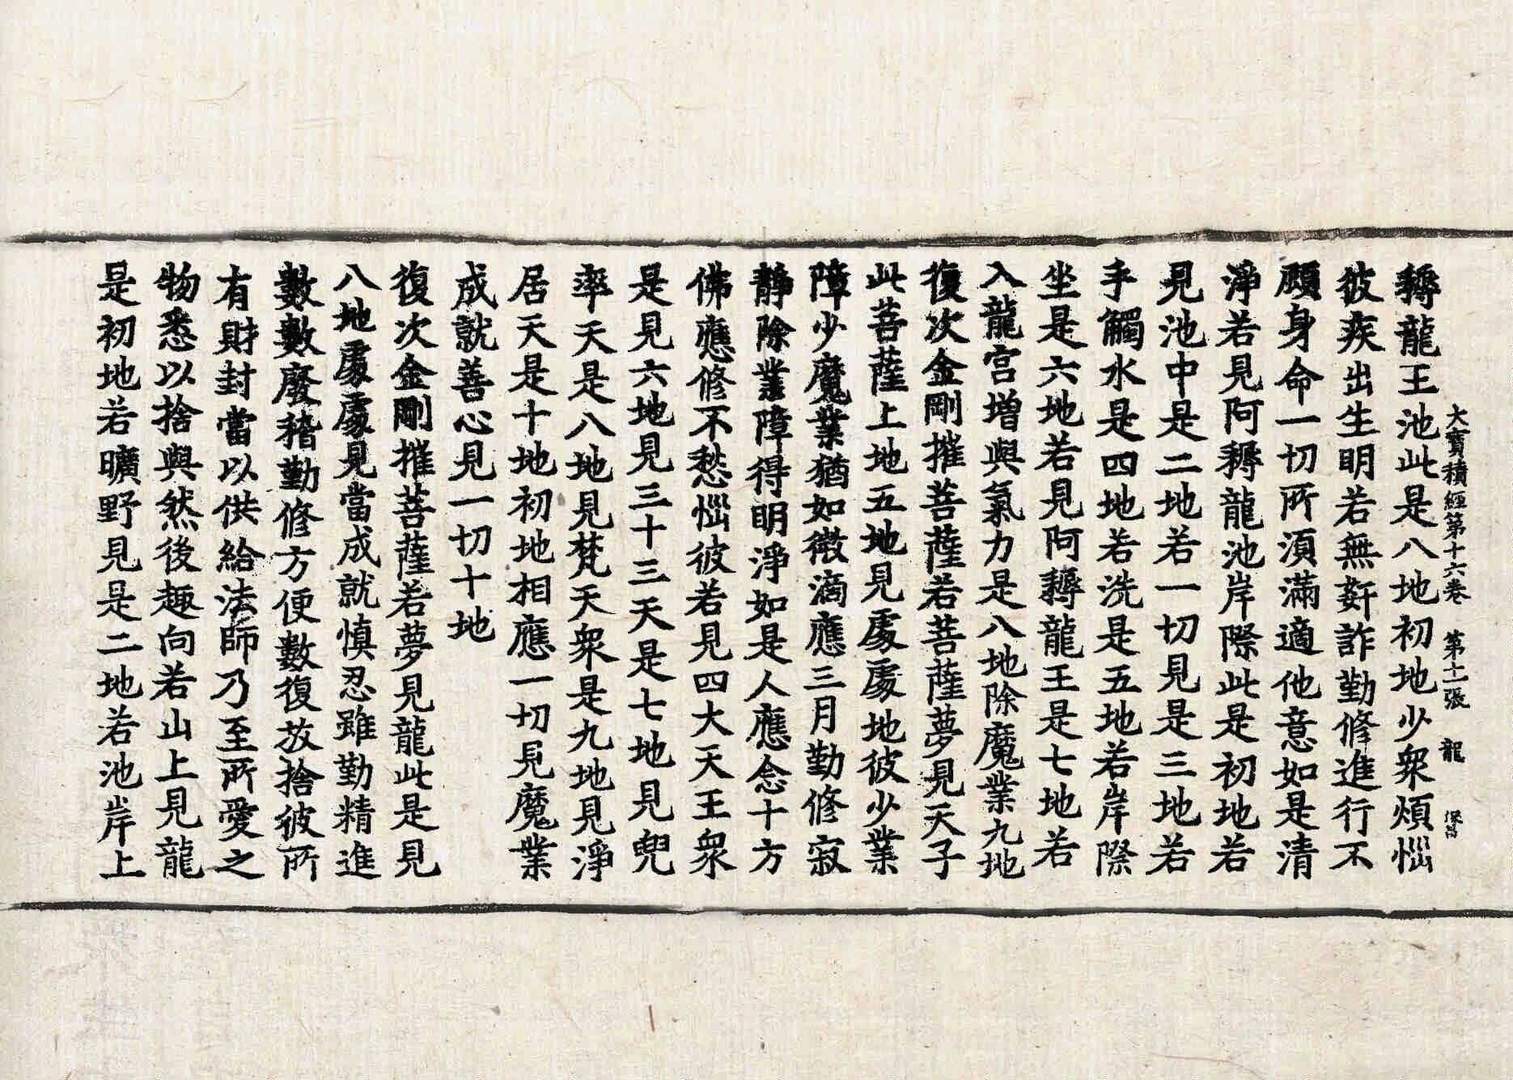 大寶積經第十六卷　第十一張　龍
耨龍王池此是八地初地少衆煩惱
彼疾出生明若無姧詐勤修進行不
顧身命一切所須滿適他意如是清
淨若見阿耨龍池岸際此是初地若
見池中是二地若一切見是三地若
手觸水是四地若洗是五地若岸際
坐是六地若見阿耨龍王是七地若
入龍宮增與氣力是八地除魔業九地
復次金剛摧菩薩若菩薩夢見天子
此菩薩上地五地見處處地彼少業
障少魔業猶如微滴應三月勤修寂
靜除業障得明淨如是人應念十方
佛應修不愁惱彼若見四大天王衆
是見六地見三十三天是七地見兜
率天是八地見梵天衆是九地見淨
居天是十地初地相應一切見魔業
成就善心見一切十地
復次金剛摧菩薩若夢見龍此是見
八地處處見當成就慎忍雖勤精進
數數廢稽勤修方便數復放捨彼所
有財封當以供給法師乃至所愛之
物悉以捨與然後趣向若山上見龍
是初地若曠野見是二地若池岸上